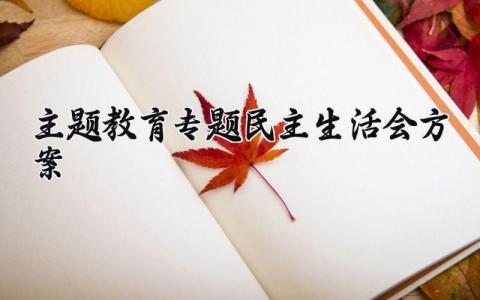 主题教育专题民主生活会方
案